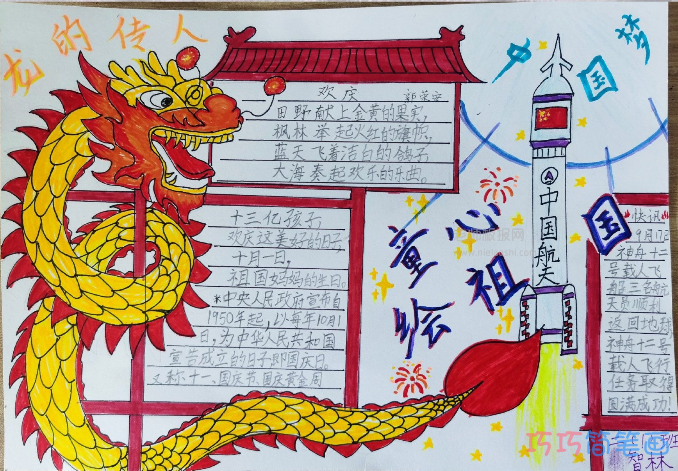 龙的传人
中国梦
欢庆
田野献上金黄的果实,
枫林举起火红的旗帜,
蓝天飞着洁白的鸽子,
大海奏起欢乐的乐曲。
十三亿孩子,
欢庆这美好的日子,
十月一日,
祖国妈妈的生日。
*中央人民政府宣布自
1950年起,以每年10月1
日,为中华人民共和国
宣告成立的日子即国庆日。
又称十一、国庆节、国庆黄金周
童心
绘祖国
中国航天
快讯
9月17日
神舟十二
号载人飞
船三名航
天员顺利
返回地球
神舟十二号
载人飞行
任务取得
圆满成功!
班
智林
巧巧简笔画